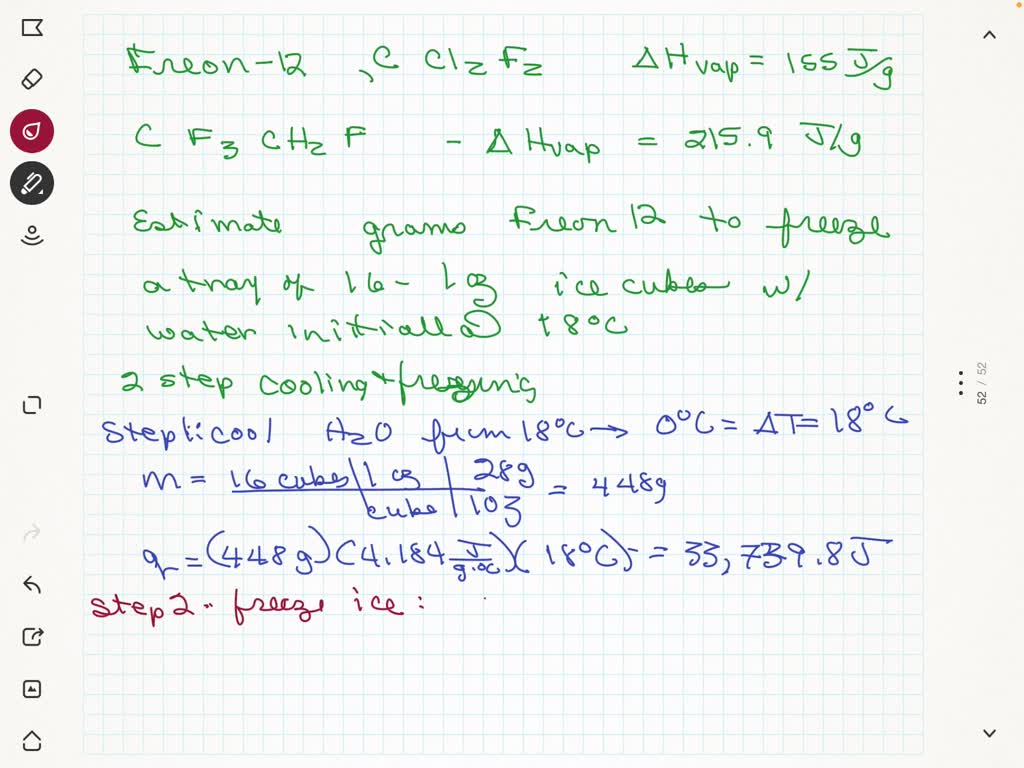 Freon-12 , C Cl2 F2 ΔHvap = 155 J/g
C F3 CH2 F - ΔHvap = 215.9 J/g
Estimate grams Freon 12 to freeze
a tray of 16 - 1 oz ice cubes w/
water initiall @ 18°C
2 step cooling + freezing
Step 1: cool H2O from 18°C → 0°C = ΔT = 18°C
m = 16 cubes | 1 oz | 28g = 448g
cube | 1 oz
q = (448 g)(4.184 J/g·°C)(18°C) = 33,739.8 J
Step 2 - freeze ice :
52 / 52